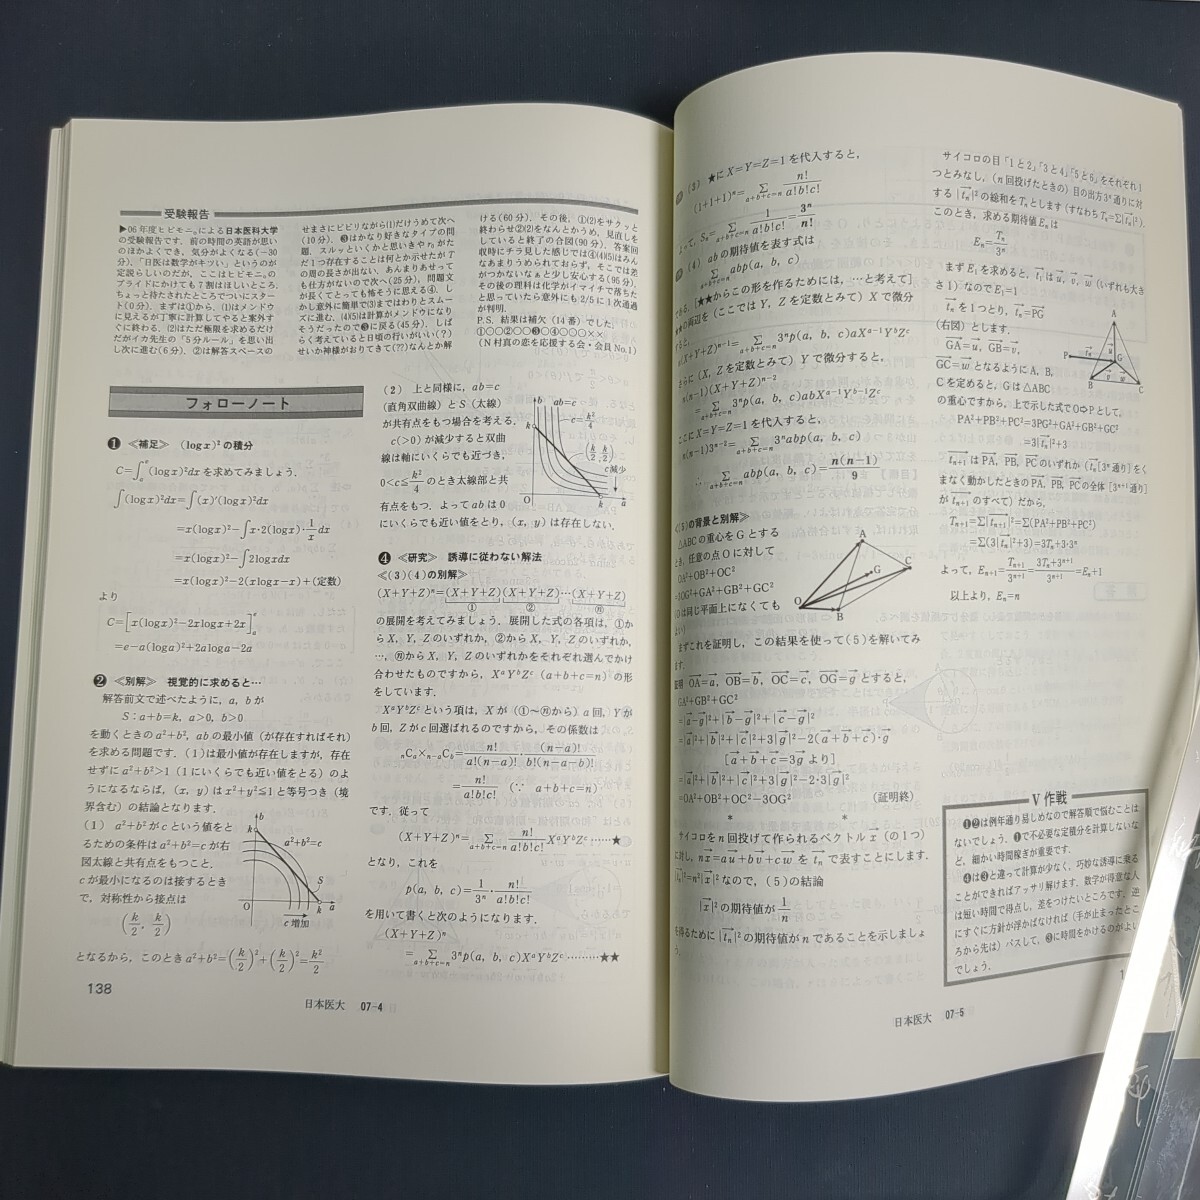 受験報告
▶06年度ヒビモニnによる日本医科大学
の受験報告です．前の時間の英語が思い
のほかよくでき，気分がよくなる(−30
分)．「日医は数学がキツい」というのが
定説らしいのだが，ここはヒビモニnの
プライドにかけても7割はほしいところ．
ちょっと待たされたところでついにスター
ト(0分)．まずは①から．(1)はメンドウ
に見えるが丁寧に計算してやると案外す
ぐに終わる．(2)はただ極限を求めるだけ
だがイカ先生の「5分ルール」を思い出
し次に進む(6分)．②は解答スペースの
せまさにビビりながら(1)だけうめて次へ
(10分)．❸はかなり好きなタイプの問
題．スルッといくかと思いきや
だ1つ存在することは何とか示せたがT
の周の長さが出ない．あんまりあせって
も仕方がないので次へ(25分)．問題文
が長くてとっても怖そうに思える④．し
かし意外に簡単で(3)まではわりとスムー
ズに進む．(4)(5)は計算がメンドウになり
そうだったので❸に戻る(45分)．しば
らく考えていると日頃の行いがいい(？)
せいか神様がおりてきて(??)なんとか解
ける(60分)．その後，①(2)をサクッと
終わらせ②(2)をなんとかうめ，見直しを
していると終了の合図(90分)．答案回
収時にチラ見した感じでは④(4)(5)はみん
なあまりうめられておらず，そこでは差
がつかないなぁと少し安心する(95分)．
その後の理科は化学がイマイチで落ちた
と思っていたら意外にも2/5に1次通過
が判明．
P.S. 結果は補欠(14番)でした．
①○○②○○❸○④○○○××
(N村真の恋を応援する会・会員No.1)
フォローノート
❶ ≪補足≫ (logx)²の積分
C=∫ₐᵉ(logx)²dxを求めてみましょう．
∫(logx)²dx=∫(x)′(logx)²dx
=x(logx)²−∫x·2(logx)·1/x dx
=x(logx)²−∫2logxdx
=x(logx)²−2(xlogx−x)+(定数)
より
C=[x(logx)²−2xlogx+2x]ₐᵉ
=e−a(loga)²+2aloga−2a
❷ ≪別解≫ 視覚的に求めると…
解答前文で述べたように，a, bが
S：a+b=k, a>0, b>0
を動くときのa²+b², abの最小値(が存在すればそれ)
を求める問題です．(1)は最小値が存在しますが，存在
せずにa²+b²>1(1にいくらでも近い値をとる)のよ
うになるならば，(x, y)はx²+y²≦1と等号つき(境
界含む)の結論となります．
(1) a²+b²がcという値をと
るための条件はa²+b²=cが右
図太線と共有点をもつこと．
cが最小になるのは接するとき
で，対称性から接点は
(k/2, k/2)
となるから，このときa²+b²=(k/2)²+(k/2)²=k²/2
b
k
a²+b²=c
S
O
k
a
c増加
138
日本医大 07-4
(2) 上と同様に，ab=c
(直角双曲線)とS(太線)
が共有点をもつ場合を考える．
c(>0)が減少すると双曲
線は軸にいくらでも近づき，
0<c≦k²/4のとき太線部と共
有点をもつ．よってabは0
にいくらでも近い値をとり，(x, y)は存在しない．
b
ab=c
k
c=k²/4
(k/2, k/2)
c減少
O
k
a
❹ ≪研究≫ 誘導に従わない解法
≪(3)(4)の別解≫
(X+Y+Z)ⁿ=(X+Y+Z)(X+Y+Z)…(X+Y+Z)
① ② ⓝ
の展開を考えてみましょう．展開した式の各項は，①か
らX, Y, Zのいずれか，②からX, Y, Zのいずれか，
…，ⓝからX, Y, Zのいずれかをそれぞれ選んでかけ
合わせたものですから，XᵃYᵇZᶜ (a+b+c=n)の形
をしています．
XᵃYᵇZᶜという項は，Xが(①〜ⓝから)a回，Yが
b回，Zがc回選ばれるのですから，その係数は
ₙCₐ×ₙ₋ₐC_b=n!/a!(n−a)!·(n−a)!/b!(n−a−b)!
=n!/a!b!c! (∵ a+b+c=n)
です．従って
(X+Y+Z)ⁿ=Σ_{a+b+c=n} n!/a!b!c! XᵃYᵇZᶜ ……★
となり，これを
p(a, b, c)=1/3ⁿ·n!/a!b!c!
を用いて書くと次のようになります．
(X+Y+Z)ⁿ
=Σ_{a+b+c=n} 3ⁿp(a, b, c)XᵃYᵇZᶜ………★★
(3) ★にX=Y=Z=1を代入すると，
(1+1+1)ⁿ=Σ_{a+b+c=n} n!/a!b!c!
よって，Sₙ=Σ_{a+b+c=n} 1/a!b!c!=3ⁿ/n!
(4) abの期待値を表す式は
Σ_{a+b+c=n} abp(a, b, c)
である．[★★からこの形を作るためには，…と考えて]
★★の両辺を(ここではY, Zを定数とみて)Xで微分
すると，
n(X+Y+Z)ⁿ⁻¹=Σ_{a+b+c=n} 3ⁿp(a, b, c)aXᵃ⁻¹YᵇZᶜ
さらに(X, Zを定数とみて)Yで微分すると，
n(n−1)(X+Y+Z)ⁿ⁻²
=Σ_{a+b+c=n} 3ⁿp(a, b, c)abXᵃ⁻¹Yᵇ⁻¹Zᶜ
ここにX=Y=Z=1を代入すると，
n(n−1)3ⁿ⁻²=Σ_{a+b+c=n} 3ⁿabp(a, b, c)
∴ Σ_{a+b+c=n} abp(a, b, c)=n(n−1)/9
≪(5)の背景と別解≫
△ABCの重心をGとする
とき，任意の点Oに対して
OA²+OB²+OC²
=3OG²+GA²+GB²+GC²
(Oは同じ平面上になくても
よい)
A
G
C
O
B
まずこれを証明し，この結果を使って(5)を解いてみ
ます．
証明 OA→=a→, OB→=b→, OC→=c→, OG→=g→とすると，
GA²+GB²+GC²
=|a→−g→|²+|b→−g→|²+|c→−g→|²
=|a→|²+|b→|²+|c→|²+3|g→|²−2(a→+b→+c→)·g→
[a→+b→+c→=3g→より]
=|a→|²+|b→|²+|c→|²+3|g→|²−2·3|g→|²
=OA²+OB²+OC²−3OG² (証明終)
* *
サイコロをn回投げて作られるベクトルx→(の1つ)
に対し，nx→=au→+bv→+cw→をtₙ→で表すことにします．
|tₙ→|²=n²|x→|²なので，(5)の結論
|x→|²の期待値が1/n
を得るために|tₙ→|²の期待値がnであることを示しましょ
う．
サイコロの目「1と2」「3と4」「5と6」をそれぞれ1
つとみなし，(n回投げたときの)目の出方3ⁿ通りに対
する|tₙ→|²の総和をTₙとします(すなわちTₙ=Σ|tₙ→|²)．
このとき，求める期待値Eₙは
Eₙ=Tₙ/3ⁿ
まずE₁を求めると，t₁→はu→, v→, w→(いずれも大き
さ1)なのでE₁=1
tₙ→を1つとり，tₙ→=PG→
(右図)とします．
GA→=u→, GB→=v→,
GC→=w→となるようにA, B,
Cを定めると，Gは△ABC
の重心ですから，上で示した式でO⇨Pとして，
PA²+PB²+PC²=3PG²+GA²+GB²+GC²
=3|tₙ→|²+3
A
P
G
B
C
tₙ₊₁→はPA→, PB→, PC→のいずれか(tₙ→[3ⁿ通り]をく
まなく動かしたときのPA→, PB→, PC→の全体[3ⁿ⁺¹通り]
がtₙ₊₁→のすべて)だから，
Tₙ₊₁=Σ|tₙ₊₁→|²=Σ(PA²+PB²+PC²)
=Σ(3|tₙ→|²+3)=3Tₙ+3·3ⁿ
よって，Eₙ₊₁=Tₙ₊₁/3ⁿ⁺¹=3Tₙ+3ⁿ⁺¹/3ⁿ⁺¹=Eₙ+1
以上より，Eₙ=n
V作戦
❶❷は例年通り易しめなので解答順で悩むことは
ないでしょう．❶で不必要な定積分を計算しないな
ど，細かい時間稼ぎが重要です．
❹は❸と違って計算が少なく，巧妙な誘導に乗る
ことができればアッサリ解けます．数学が得意な人
は短い時間で得点し，差をつけたいところです．逆
にすぐに方針が浮かばなければ(手が止まったとこ
ろから先は)パスして，❸に時間をかけるのがよい
でしょう．
日本医大 07-5